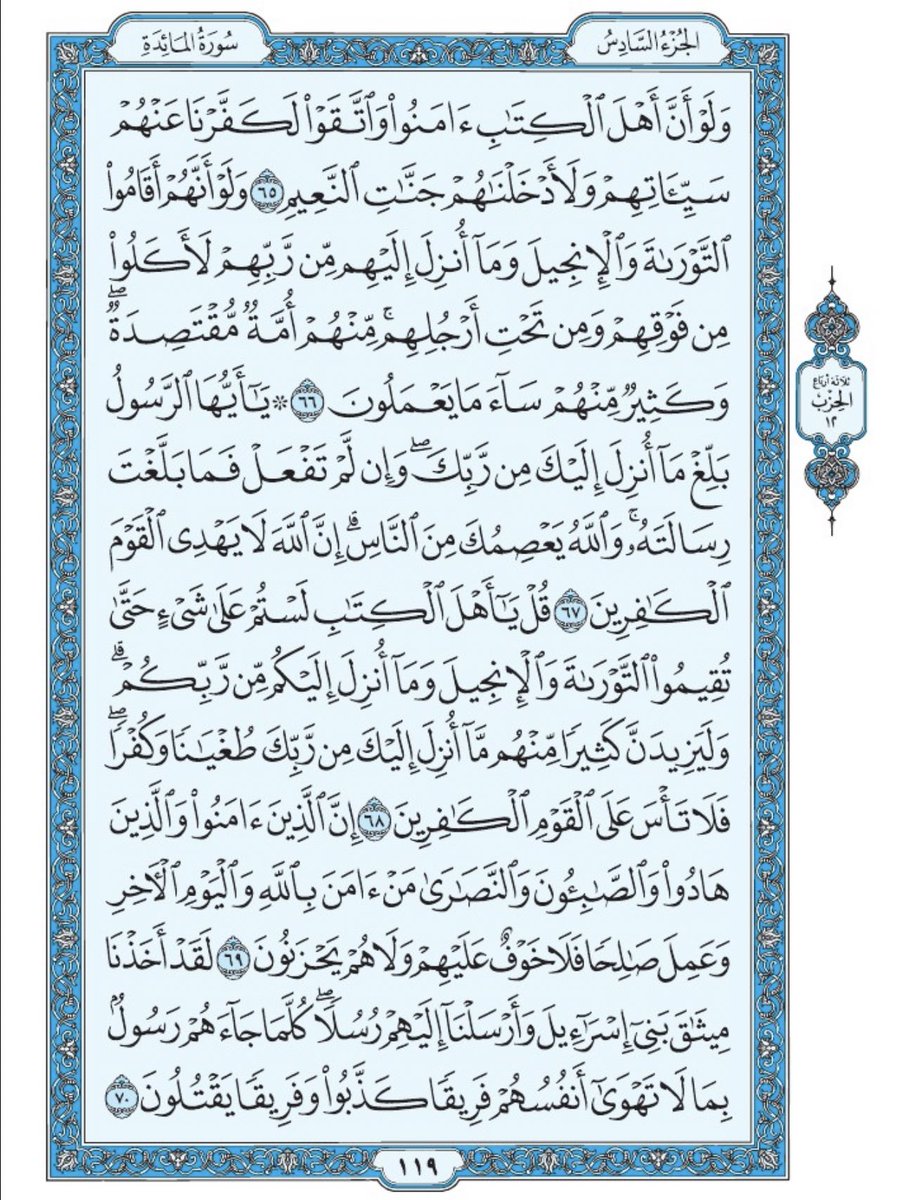 الجُزْءُ السَّادِسُ
سُورَةُ المَائِدَةِ
وَلَوۡ أَنَّ أَهۡلَ ٱلۡكِتَٰبِ ءَامَنُواْ وَٱتَّقَوۡاْ لَكَفَّرۡنَا عَنۡهُمۡ
سَيِّـَٔاتِهِمۡ وَلَأَدۡخَلۡنَٰهُمۡ جَنَّٰتِ ٱلنَّعِيمِ ٦٥ وَلَوۡ أَنَّهُمۡ أَقَامُواْ
ٱلتَّوۡرَىٰةَ وَٱلۡإِنجِيلَ وَمَآ أُنزِلَ إِلَيۡهِم مِّن رَّبِّهِمۡ لَأَكَلُواْ
مِن فَوۡقِهِمۡ وَمِن تَحۡتِ أَرۡجُلِهِمۚ مِّنۡهُمۡ أُمَّةٞ مُّقۡتَصِدَةٞۖ
وَكَثِيرٞ مِّنۡهُمۡ سَآءَ مَا يَعۡمَلُونَ ٦٦ ۞ يَٰٓأَيُّهَا ٱلرَّسُولُ
بَلِّغۡ مَآ أُنزِلَ إِلَيۡكَ مِن رَّبِّكَۖ وَإِن لَّمۡ تَفۡعَلۡ فَمَا بَلَّغۡتَ
رِسَالَتَهُۥۚ وَٱللَّهُ يَعۡصِمُكَ مِنَ ٱلنَّاسِۗ إِنَّ ٱللَّهَ لَا يَهۡدِي ٱلۡقَوۡمَ
ٱلۡكَٰفِرِينَ ٦٧ قُلۡ يَٰٓأَهۡلَ ٱلۡكِتَٰبِ لَسۡتُمۡ عَلَىٰ شَيۡءٍ حَتَّىٰ
تُقِيمُواْ ٱلتَّوۡرَىٰةَ وَٱلۡإِنجِيلَ وَمَآ أُنزِلَ إِلَيۡكُم مِّن رَّبِّكُمۡۗ
وَلَيَزِيدَنَّ كَثِيرٗا مِّنۡهُم مَّآ أُنزِلَ إِلَيۡكَ مِن رَّبِّكَ طُغۡيَٰنٗا وَكُفۡرٗاۖ
فَلَا تَأۡسَ عَلَى ٱلۡقَوۡمِ ٱلۡكَٰفِرِينَ ٦٨ إِنَّ ٱلَّذِينَ ءَامَنُواْ وَٱلَّذِينَ
هَادُواْ وَٱلصَّٰبِـُٔونَ وَٱلنَّصَٰرَىٰ مَنۡ ءَامَنَ بِٱللَّهِ وَٱلۡيَوۡمِ ٱلۡأٓخِرِ
وَعَمِلَ صَٰلِحٗا فَلَا خَوۡفٌ عَلَيۡهِمۡ وَلَا هُمۡ يَحۡزَنُونَ ٦٩ لَقَدۡ أَخَذۡنَا
مِيثَٰقَ بَنِيٓ إِسۡرَٰٓءِيلَ وَأَرۡسَلۡنَآ إِلَيۡهِمۡ رُسُلٗاۖ كُلَّمَا جَآءَهُمۡ رَسُولُۢ
بِمَا لَا تَهۡوَىٰٓ أَنفُسُهُمۡ فَرِيقٗا كَذَّبُواْ وَفَرِيقٗا يَقۡتُلُونَ ٧٠
ثلاثة أرباع
الحِزْب
١٢
١١٩